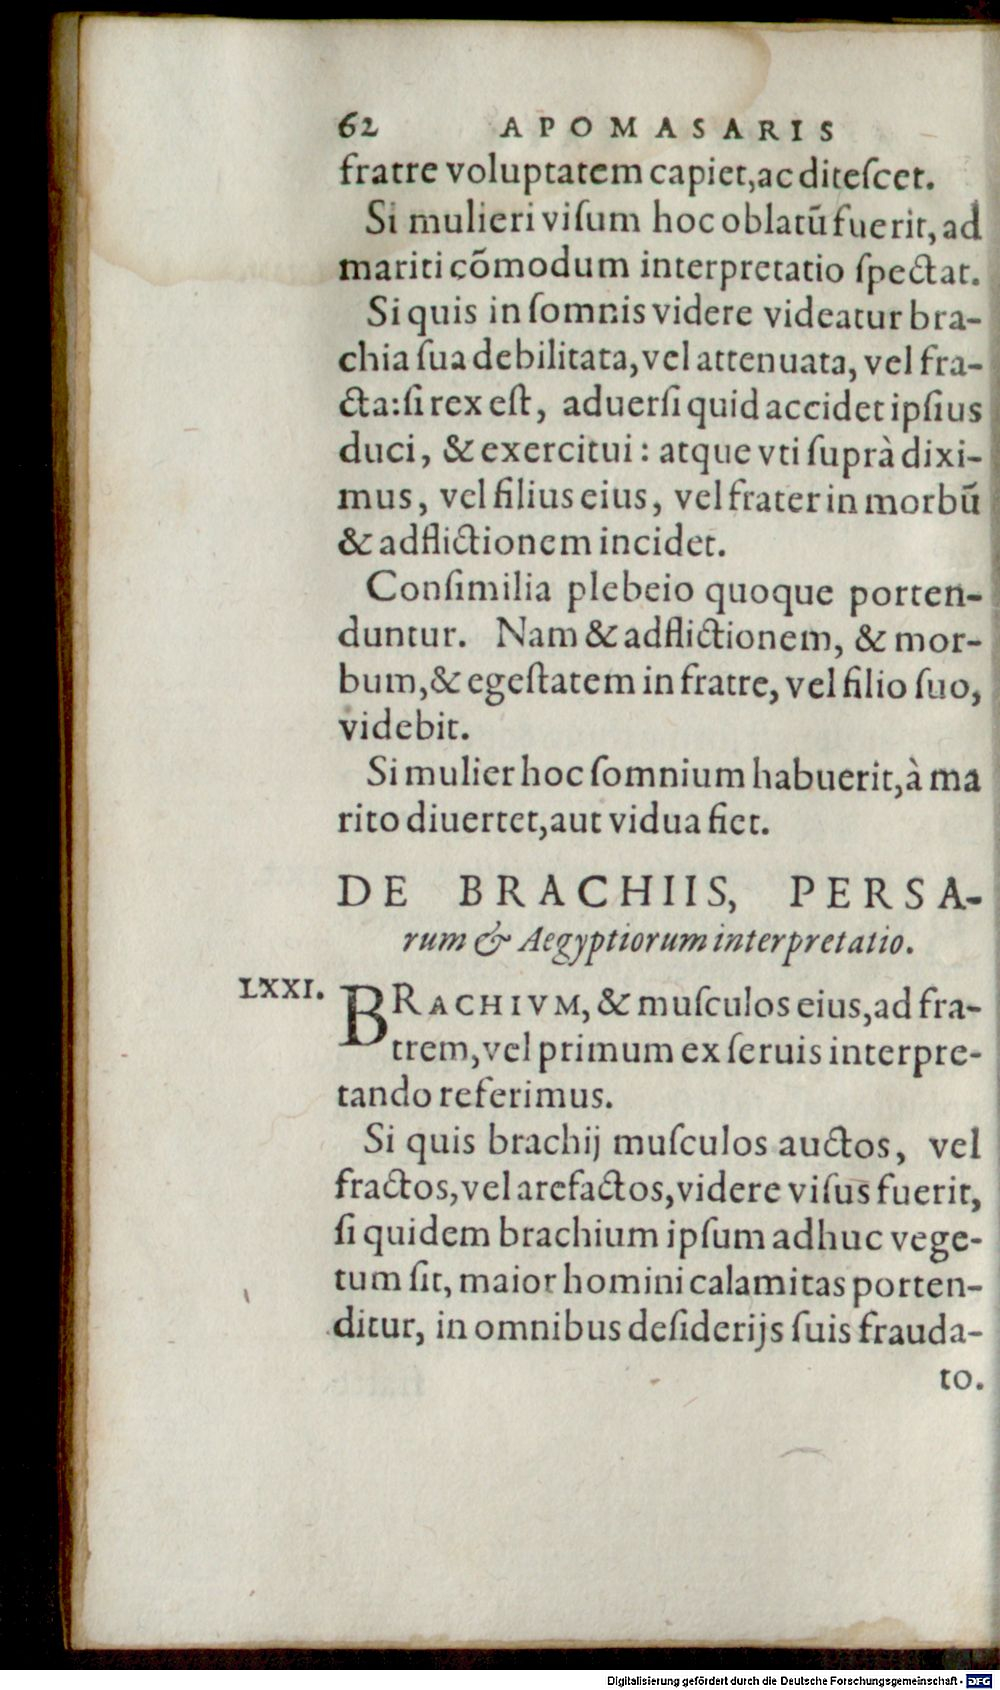 62 APOMASARIS
fratre voluptatem capiet,ac diteſcet.
Si mulieri viſum hoc oblatũ fuerit, ad
mariti cõmodum interpretatio ſpectat.
Si quis in ſomnis videre videatur bra-
chia ſua debilitata, vel attenuata, vel fra-
cta: ſi rex eſt, aduerſi quid accidet ipſius
duci, & exercitui: atque vti ſuprà dixi-
mus, vel filius eius, vel frater in morbũ
& adflictionem incidet.
Conſimilia plebeio quoque porten-
duntur. Nam & adflictionem, & mor-
bum, & egeſtatem in fratre, vel filio ſuo,
videbit.
Si mulier hoc ſomnium habuerit, à ma
rito diuertet, aut vidua fiet.
DE BRACHIIS, PERSA-
rum & Aegyptiorum interpretatio.
LXXI. BRACHIVM, & muſculos eius, ad fra-
trem, vel primum ex ſeruis interpre-
tando referimus.
Si quis brachij muſculos auctos, vel
fractos, vel arefactos, videre viſus fuerit,
ſi quidem brachium ipſum adhuc vege-
tum ſit, maior homini calamitas porten-
ditur, in omnibus deſiderijs ſuis frauda-
to.
Digitalisierung gefördert durch die Deutsche Forschungsgemeinschaft - DFG